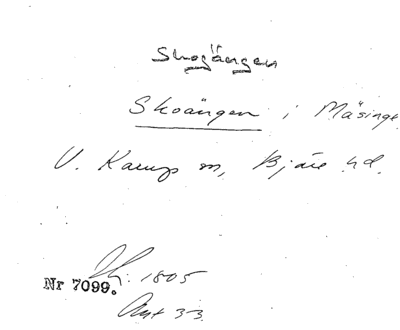 Skogängen
Skoängen i Mäsinge
V. Karup sn, Bjäre hd.
1805
Nr 7099.
Akt 33.